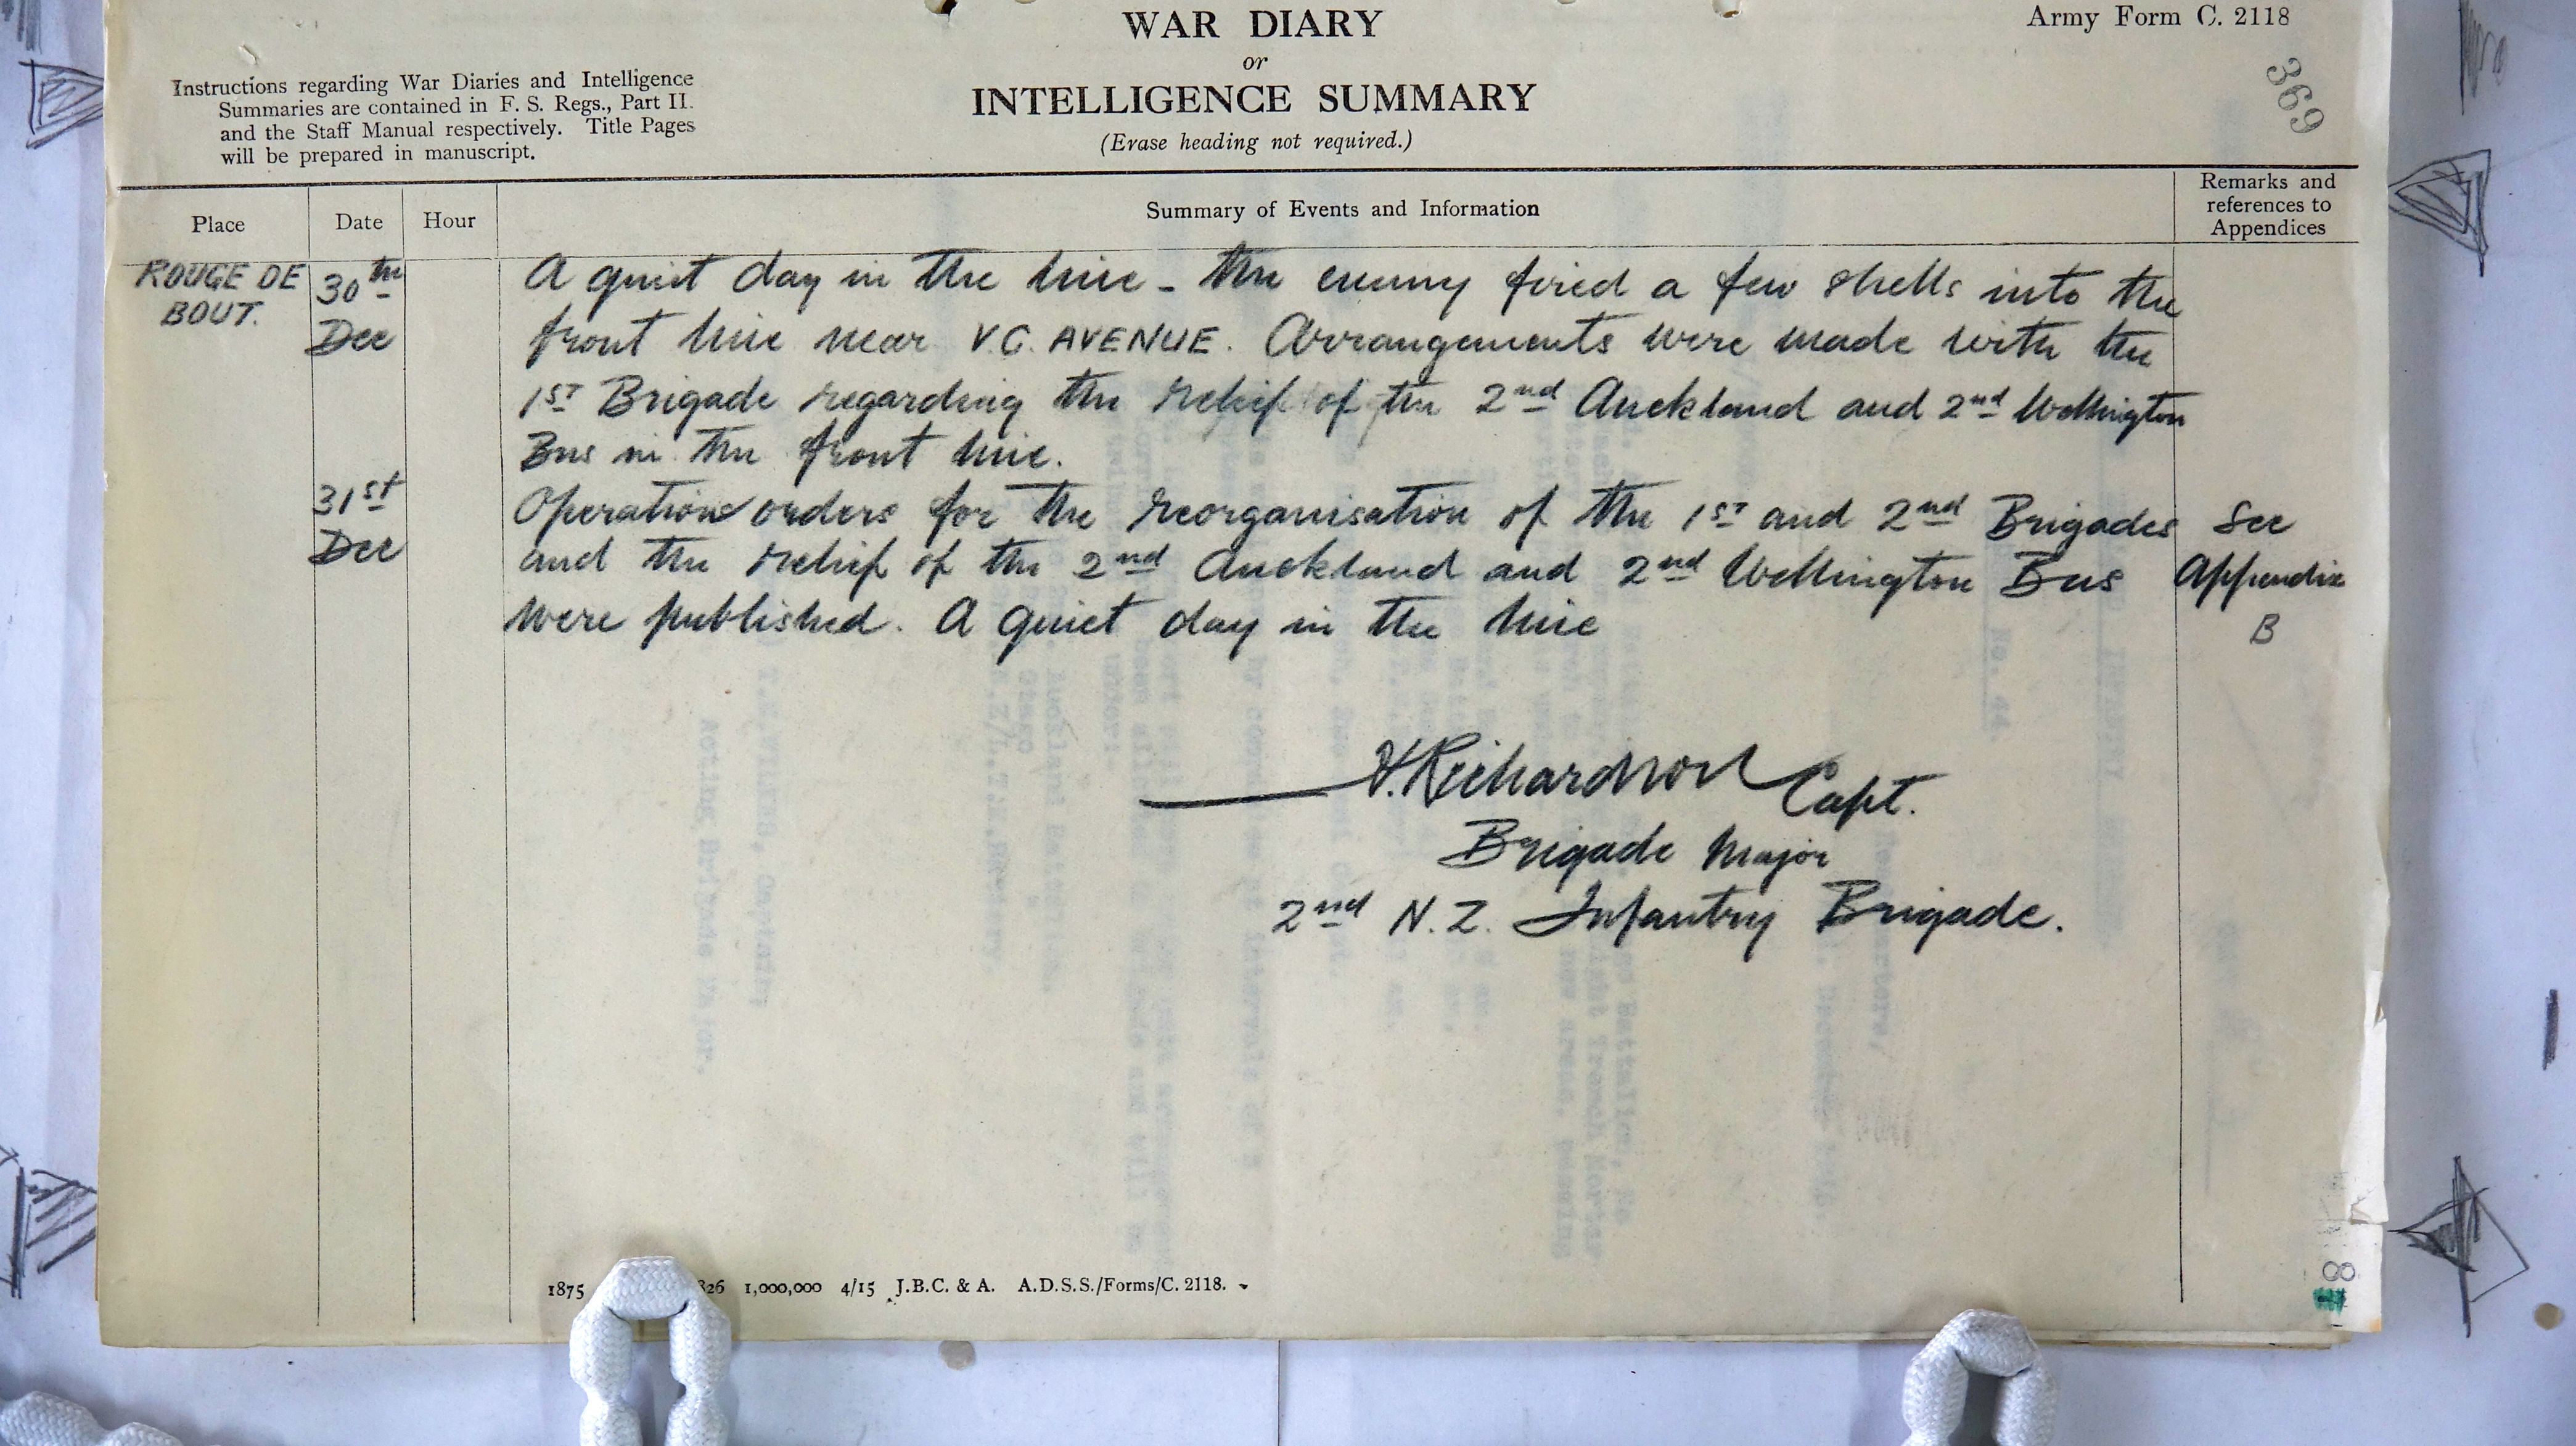 WAR DIARY
or
INTELLIGENCE SUMMARY
(Erase heading not required.)
Army Form C. 2118
369
Instructions regarding War Diaries and Intelligence
Summaries are contained in F. S. Regs., Part II.
and the Staff Manual respectively. Title Pages
will be prepared in manuscript.
Place
Date
Hour
Summary of Events and Information
Remarks and
references to
Appendices
ROUGE DE
BOUT.
30th
Dec
A quiet day in the line - the enemy fired a few shells into the
front line near V.C. AVENUE. Arrangements were made with the
1ST Brigade regarding the relief of the 2nd Auckland and 2nd Wellington
Bns in the front line.
31st
Dec
Operation orders for the reorganisation of the 1ST and 2nd Brigades
and the relief of the 2nd Auckland and 2nd Wellington Bns
were published. A quiet day in the line
See
Appendix
B
Richardson Capt.
Brigade Major
2nd N.Z. Infantry Brigade.
1875 826 1,000,000 4/15 J.B.C. & A. A.D.S.S./Forms/C. 2118.